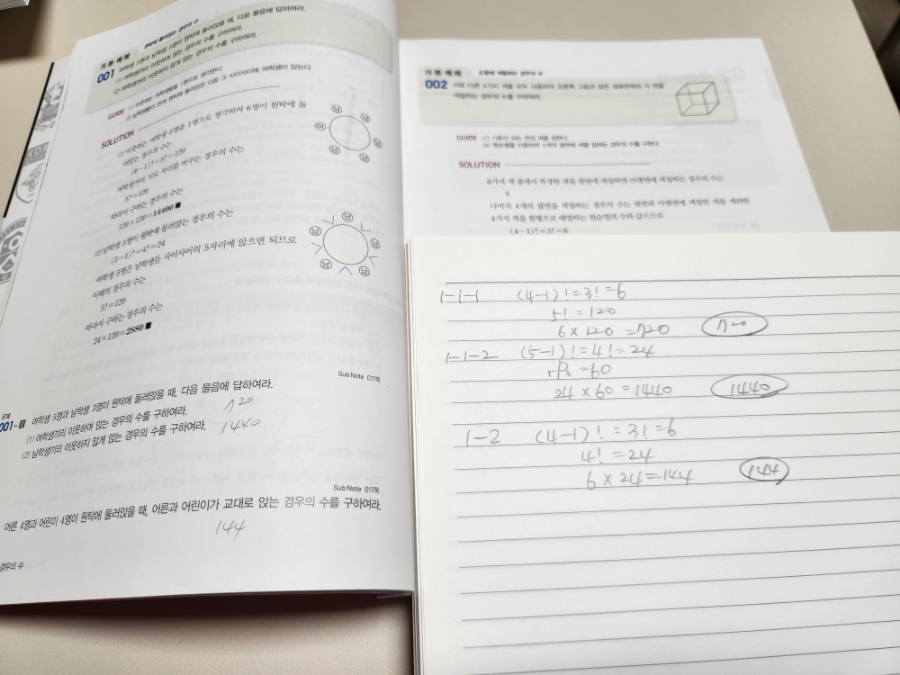 기본 예제 원탁에 둘러앉는 경우의 수
001 여학생 5명과 남학생 5명이 원탁에 둘러앉을 때, 다음 물음에 답하여라.
(1) 여학생끼리 이웃하여 앉는 경우의 수를 구하여라.
(2) 여학생끼리 이웃하지 않게 앉는 경우의 수를 구하여라.
GUIDE (1) 이웃하는 여학생을 1명으로 생각한다.
SOLUTION
(1) 이웃하는 여학생 5명을 1명으로 생각하여 6명이 원탁에 둘
러앉는 경우의 수는
(6-1)!=5!=120
여학생끼리 서로 자리를 바꾸는 경우의 수는
5!=120
따라서 구하는 경우의 수는
120×120=14400
(2) 남학생 5명이 원탁에 둘러앉는 경우의 수는
(5-1)!=4!=24
여학생 5명은 남학생들 사이사이의 5자리에 앉으면 되므로
이때의 경우의 수는
5!=120
따라서 구하는 경우의 수는
24×120=2880
남
남
남
여
남
남
남
남
남
남
남
Sub Note 017쪽
001-1 여학생 5명과 남학생 3명이 원탁에 둘러앉을 때, 다음 물음에 답하여라.
(1) 여학생끼리 이웃하여 앉는 경우의 수를 구하여라. 720
(2) 남학생끼리 이웃하지 않게 앉는 경우의 수를 구하여라. 1440
Sub Note 017쪽
어른 4명과 어린이 4명이 원탁에 둘러앉을 때, 어른과 어린이가 교대로 앉는 경우의 수를 구하여라.
144
경우의 수
기본 예제 도형에 색칠하는 경우의 수
002 서로 다른 6가지 색을 모두 사용하여 오른쪽 그림과 같은 정육면체의 각 면을
색칠하는 경우의 수를 구하여라.
GUIDE (ⅰ) 기준이 되는 면의 색을 정한다.
(ⅱ) 원순열을 이용하여 4개의 옆면에 색을 칠하는 경우의 수를 구한다.
SOLUTION
6가지 색 중에서 특정한 색을 윗면에 색칠하면 아랫면에 색칠하는 경우의 수는
5
나머지 4개의 옆면을 색칠하는 경우의 수는 윗면과 아랫면에 색칠한 색을 제외한
4가지 색을 원형으로 배열하는 원순열의 수와 같으므로
(4-1)!=3!=6
1-1-1 (4-1)!=3!=6
5!=120
6×120=720 720
1-1-2 (5-1)!=4!=24
₅P₃=60
24×60=1440 1440
1-2 (4-1)!=3!=6
4!=24
6×24=144 144